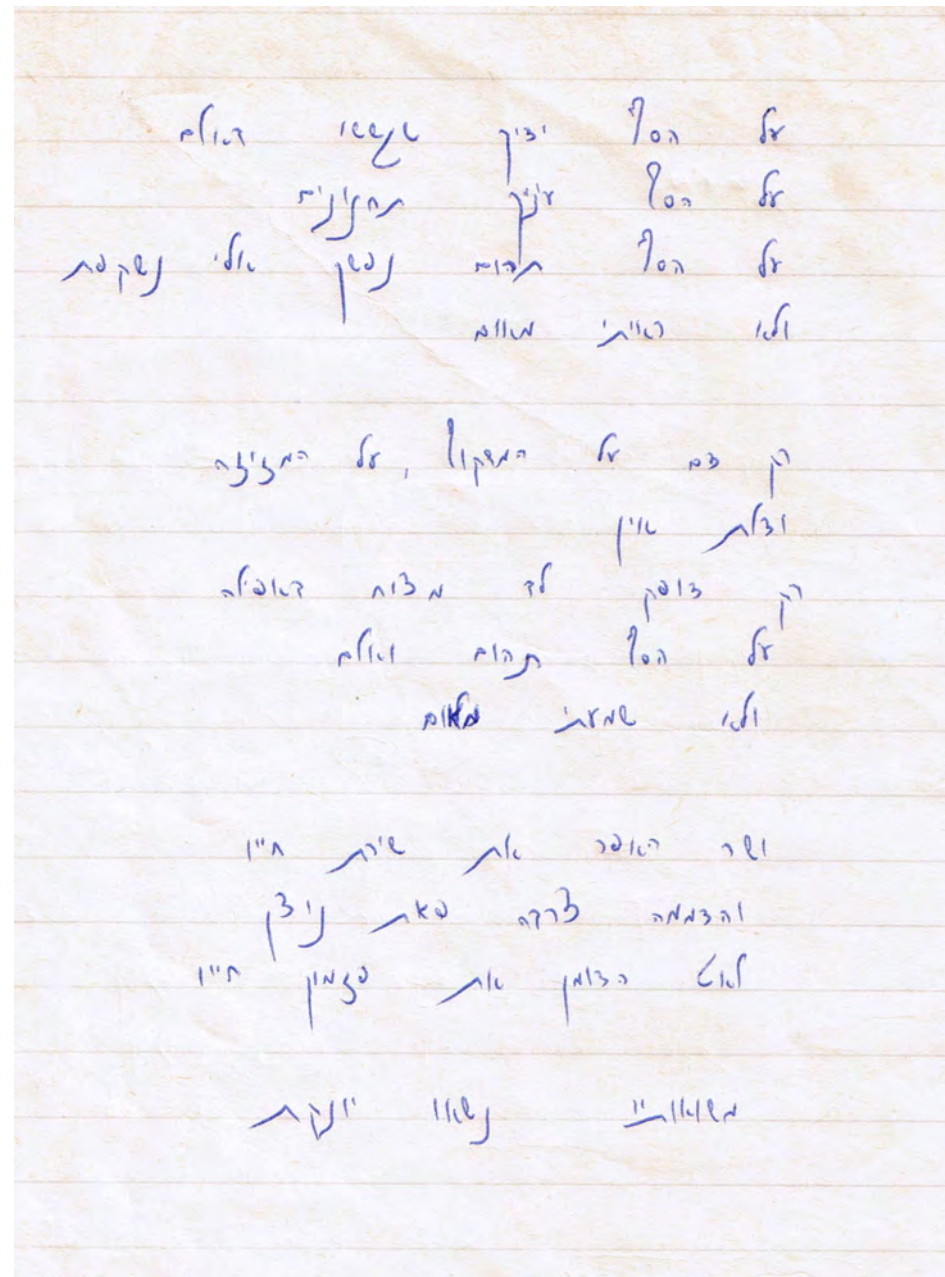 על הסף ידיך שקששו האולם
על הסף עיניך תחנונים
על הסף תהום נפשך אלי נשקפת
ולא ראיתי מאום
רק דם על המשקוף, על המזוזה
ודלת אין
רק דופק לד מצוח האפילה
על הסף תהום ואולם
ולא שמעתי מאום
ושר האופר את שירת חייו
והדממה צרדה פאת ניצן
לאט הדומן את פזמון חייו
משואותיי נשאו יונקת